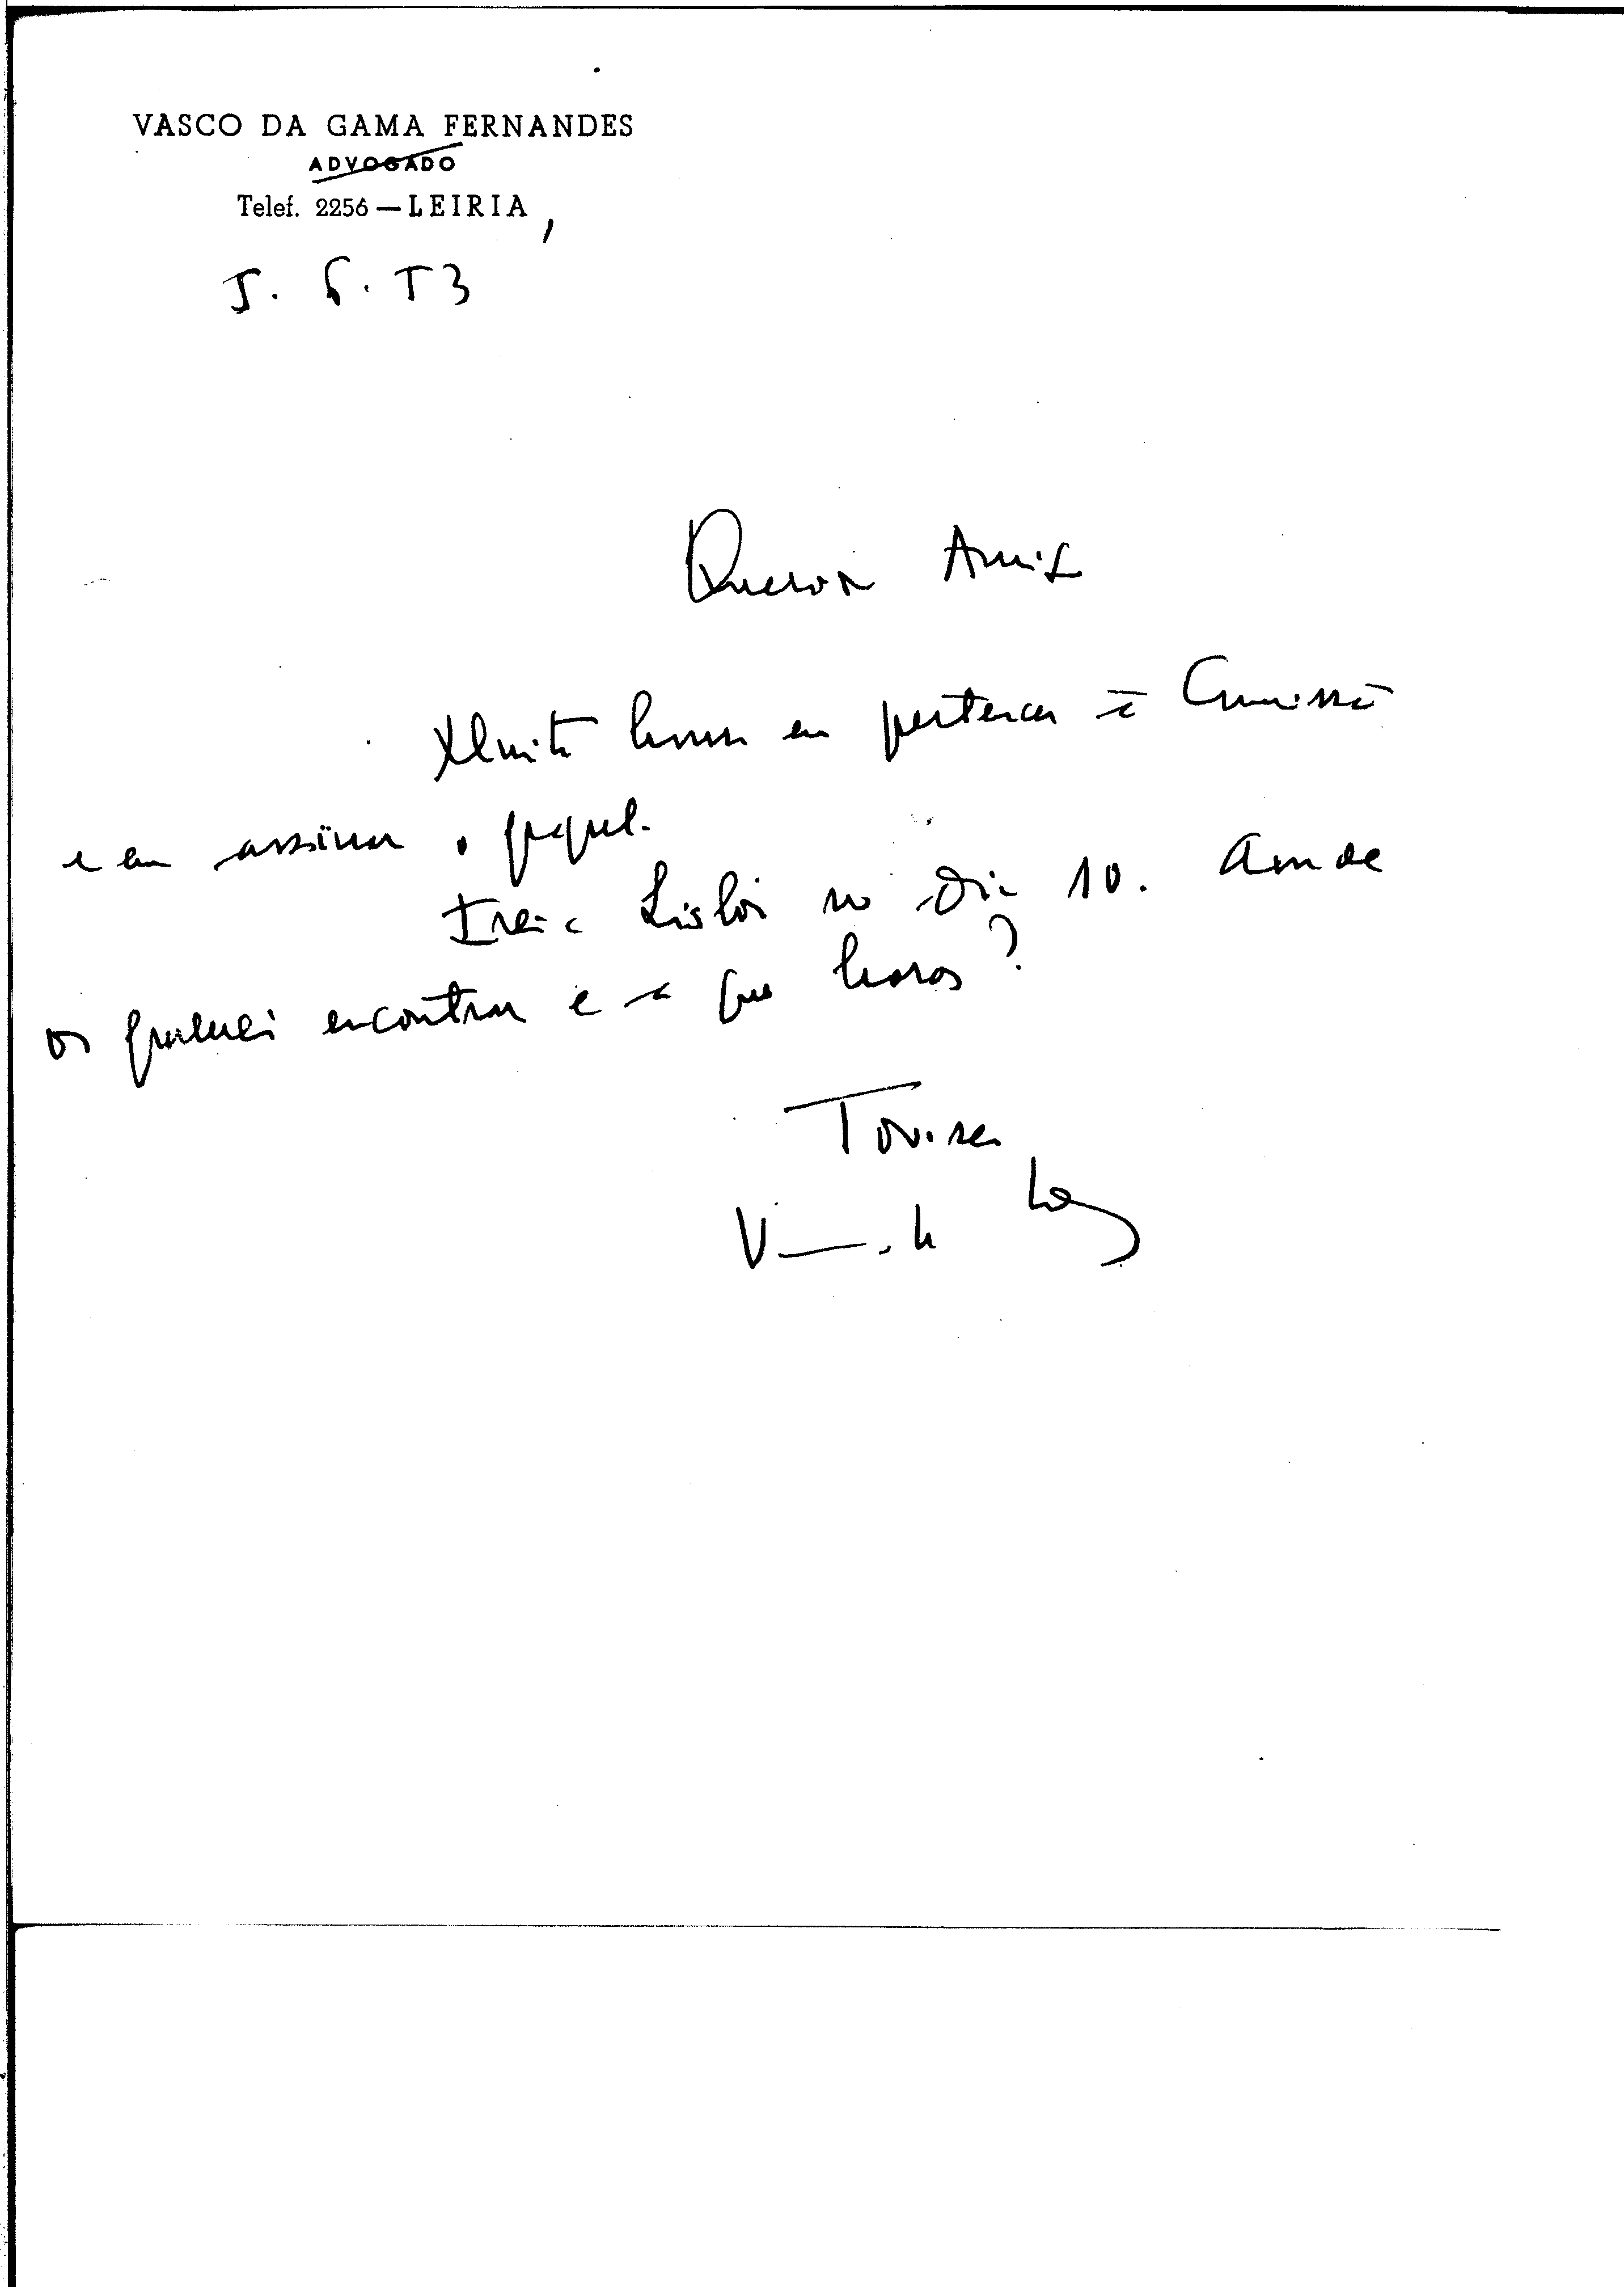 VASCO DA GAMA FERNANDES
ADVOGADO
Telef. 2256 — LEIRIA,
5. 6. 73
Querido Amigo
Muita honra em pertencer à Comissão
e em assinar o papel.
Irei a Lisboa no dia 10. Aonde
os poderei encontrar e a que horas?